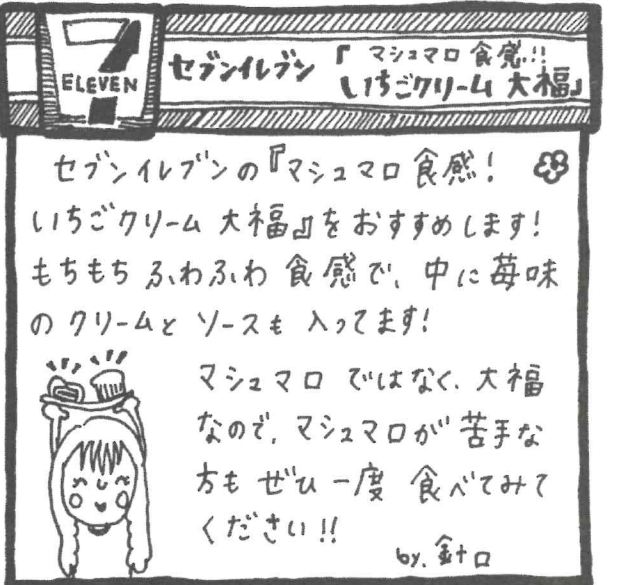 7
ELEVEN
セブンイレブン『マシュマロ食感!!
いちごクリーム大福』
セブンイレブンの『マシュマロ食感!
いちごクリーム大福』をおすすめします!
もちもちふわふわ食感で、中に苺味
のクリームとソースも入ってます!
マシュマロではなく、大福
なので、マシュマロが苦手な
方もぜひ一度食べてみて
ください!!
by. 針口